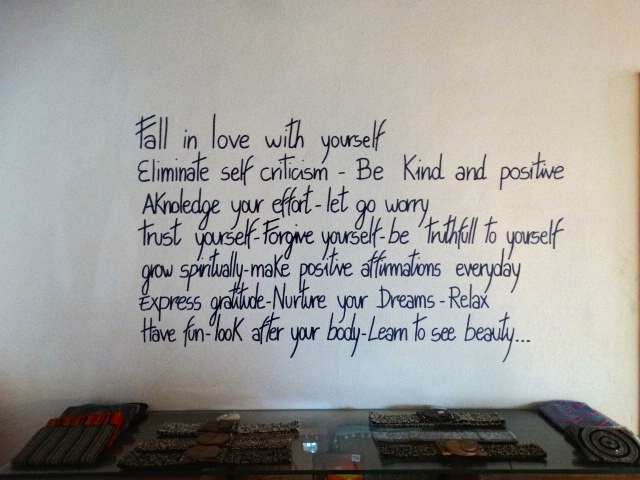 Fall in love with yourself
Eliminate self criticism - Be Kind and positive
AKnoledge your effort - let go worry
Trust yourself - Forgive yourself - be truthfull to yourself
grow spiritually - make positive affirmations everyday
Express gratitude - Nurture your Dreams - Relax
Have fun - looK after your body - Learn to see beauty...